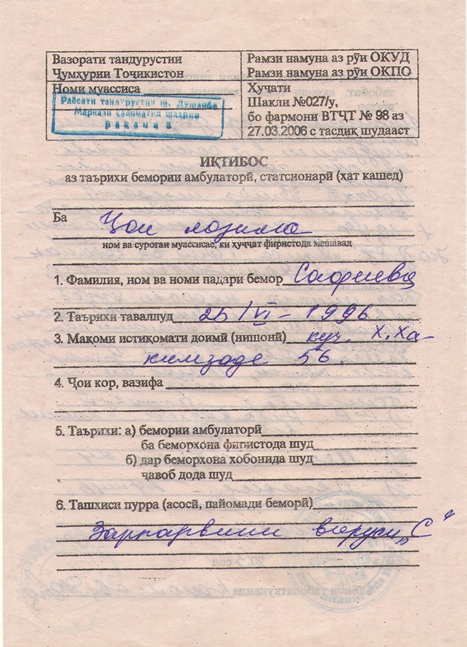 Вазорати тандурустии
Ҷумҳурии Тоҷикистон
Номи муассиса
Раёсати тандурустии ш. Душанбе
Маркази саломатии шаҳрии
рақами 8
Рамзи намуна аз рӯи ОКУД
Рамзи намуна аз рӯи ОКПО
Ҳуҷҷати
Шакли №027/у,
бо фармони ВТҶТ № 98 аз
27.03.2006 с тасдиқ шудааст
ИҚТИБОС
аз таърихи бемории амбулаторӣ, статсионарӣ (хат кашед)
Ба Ҷои лозима
ном ва суроғаи муассисае, ки ҳуҷҷат фиристода мешавад
1. Фамилия, ном ва номи падари бемор Сафиева
2. Таърихи тавалшуд 25/VI – 1996
3. Мақоми истиқомати доимӣ (нишонӣ) куч. Х. Ха-
кимзаде 56.
4. Ҷои кор, вазифа
5. Таърихи: а) бемории амбулаторӣ
ба беморхона фиристода шуд
б) дар беморхона хобонида шуд
ҷавоб дода шуд
6. Ташхиси пурра (асосӣ, пайомади беморӣ)
Зардпарвини вируси „С“